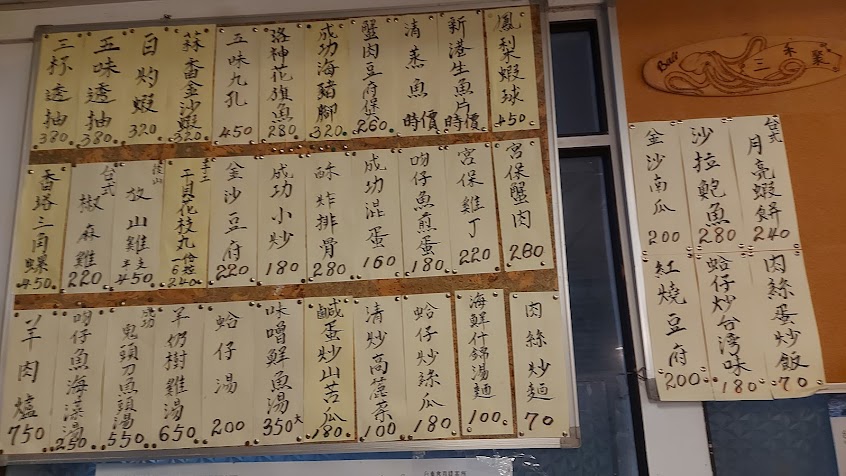 鳳梨蝦球 450
新港生魚片 時價
清蒸魚 時價
蟹肉豆府煲 260
成功海豬腳 320
洛神花旗魚 280
五味九孔 450
蒜香金沙蝦 320
白灼蝦 320
五味透抽 380
三杯透抽 380
宮保蟹肉 280
宮保雞丁 220
吻仔魚煎蛋 180
成功混蛋 160
酥炸排骨 280
成功小炒 180
金沙豆府 220
手工干貝花枝丸 一份6粒 240
放山雞 450
台式椒麻雞 220
香塔三角螺 450
肉絲炒麵 70
海鮮什錦湯麵 100
蛤仔炒絲瓜 180
清炒高麗菜 100
鹹蛋炒山苦瓜 180
味噌鮮魚湯 350大
蛤仔湯 200
羊奶樹雞湯 650
成功鬼頭刀魚頭湯 550
吻仔魚海菜湯 250
羊肉爐 750
三禾聚
台式月亮蝦餅 240
沙拉鮑魚 280
金沙南瓜 200
肉絲蛋炒飯 70
蛤仔炒台湾味 180
紅燒豆府 200